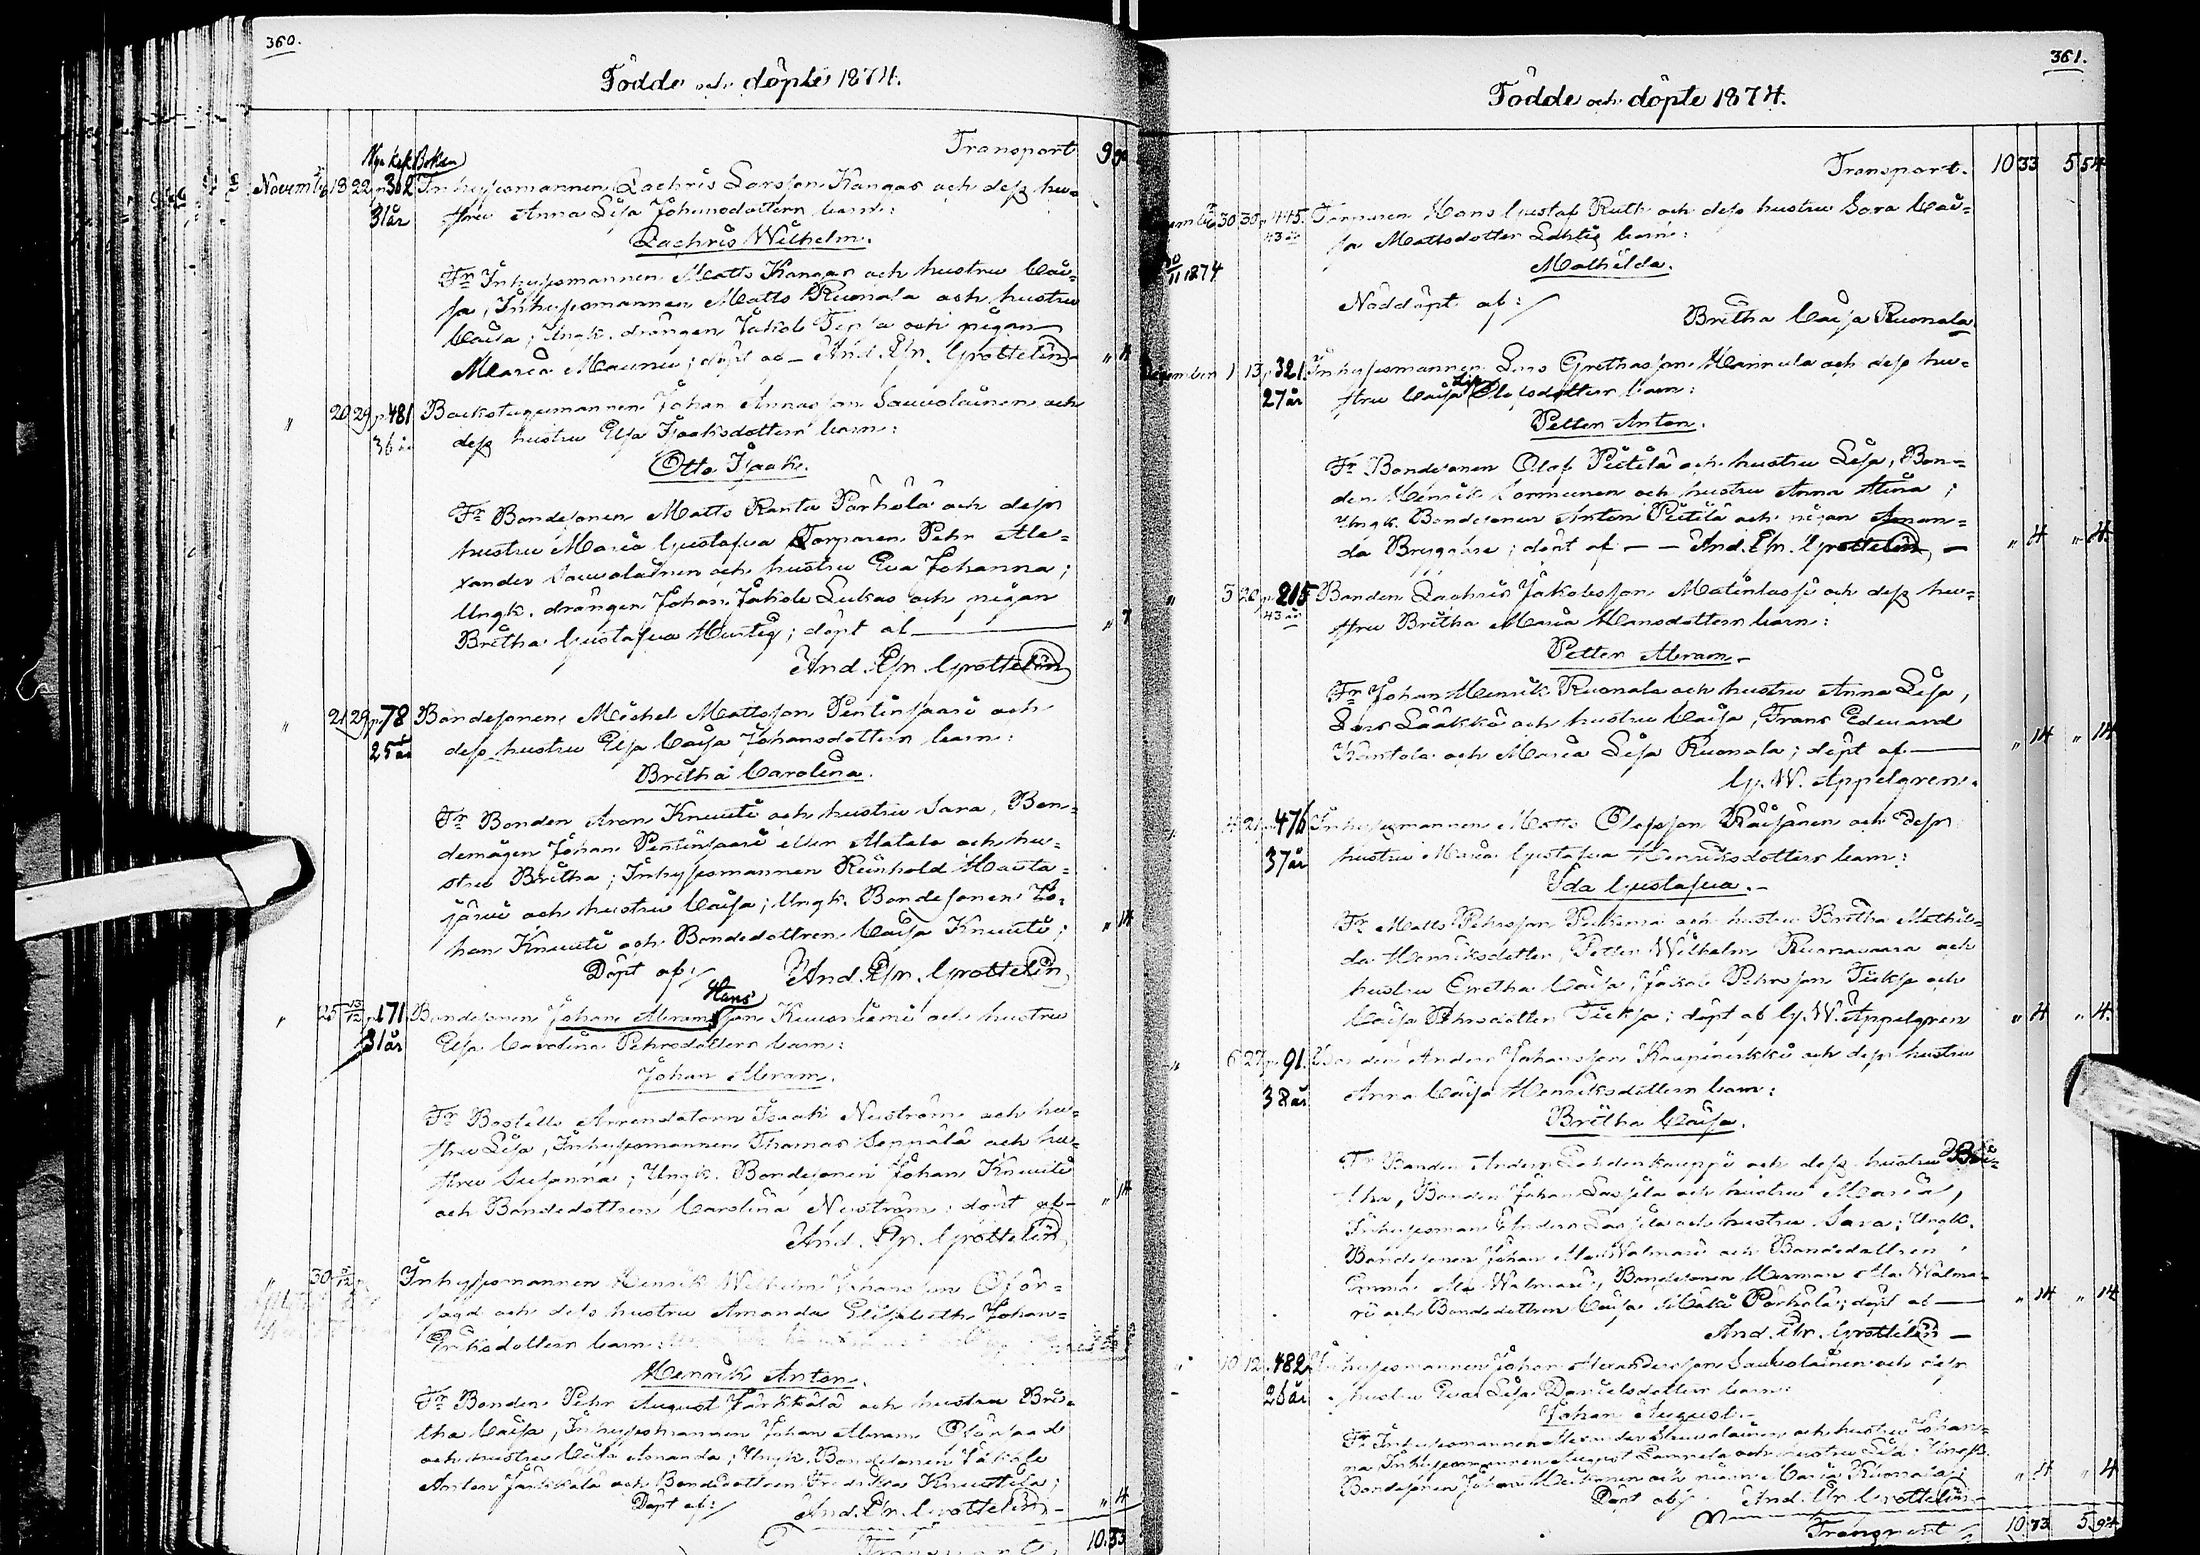 360.
Födde och döpte 1874.
Transport 9
Nya k. Boken
Novemb. 13 22 p. 302 Inhysesmannen Zachris Larsson Kangas och dess hu-
31 år stru Anna Lisa Johansdotters barn:
Zachris Wilhelm.
Fr. Inhysesmannen Matts Kangas och hustru Cai-
sa, Inhysesmannen Matts Ruonala och hustru
Caisa, Ungk. drängen Jakob och pigan
Maria Maunu; döpt af – And. Gottlein " 4
" 20 29 p. 481 Backstugumannen Johan Annasson Sauvolainen och
36 år dess hustru Elsa Isaksdotters barn:
Otto Isak.
Fr. Bondesonen Matts Ranta Pörhölä och dess
hustru Maria Gustafva Torparen Pehr Ale-
xander Sauvolainen och hustru Eva Johanna;
Ungk. drängen Johan Jakob Lukas och pigan
Britha Gustafva Hurtig; döpt af " 7
And. Gottlein
" 21 29 p. 78 Bondesonen Michel Mattsson Pentinsaari och
25 år dess hustru Elsa Caisa Johansdotters barn:
Britha Carolina.
Fr. Bonden Aron Knuuti och hustru Sara, Bon-
demågen Johan Pentinsaari eller Matala och hu-
stru Britha; Inhysesmannen Reinhold Hauta-
järvi och hustru Caisa; Ungk. Bondesonen Jo-
han Knuuti och Bondedottren Caisa Knuuti; " 14
Döpt af:/ And. Gottlein
Hans
" 25 13/12 p. 171 Bondesonen Johan Abramsson Kuusniemi och hustru
31 år Elsa Carolina Pehrsdotters barn:
Johan Abram.
Fr. Boställs Arrendatorn Isaak Nyström och hu-
stru Lisa, Inhysesmannen Thomas Seppälä och hu-
stru Susanna; Ungk. Bondesonen Johan Knuuti
och Bondedottren Carolina Nyström; döpt af – " 14
And. Gottlein
" 30 /12 Inhysesmannen Henrik Wilhelm Johansson Oför-
sagd och dess hustru Amanda Elisabeth Johan-
Eriksdotters barn:
Henrik Anton.
Fr. Bonden Pehr August Särkkälä och hustru Bri-
tha Caisa, Inhysesmannen Johan Abram Oförsagd
och hustru Amanda; Ungk. Bondesonen Jakob
Anton Särkkälä och Bondedottren Fredrika Knuutila;
Döpt af:/ And. Gottlein – " 4
Transport 10 33
361.
Födde och döpte 1874.
Transport. 10 33 5 54
30 30 p. 445. Torparen Hans Gustaf Ruth och dess hustru Sara Cai-
43 år sa Mattsdotter Lahtis barn:
30/11 1874 Mathilda.
Nöddöpt af:/
Britha Caisa Ruonala
December 1 13 p. 321 Inhysesmannen Lars Grethasson Mannula och dess hu-
27 år stru Caisa Lisa Olofsdotters barn:
Petter Anton.
Fr. Bondesonen Olof Pietilä och hustru Lisa, Bon-
den Henrik och hustru Anna Stina;
Ungk. Bondesonen Anton Pietilä och pigan Aman-
da Bryggare; döpt af – – And. Gottlein – " 4 " 4.
" 3 20 p. 215 Bonden Zachris Jakobsson Matinlassi och dess hu-
43 år stru Britha Maria Hansdotters barn:
Petter Abram. –
Fr. Johan Henrik Ruonala och hustru Anna Lisa,
Lars Lääkkö och hustru Caisa, Frans Eduard
Kantola och Maria Lisa Ruonala; döpt af " 14 " 14
G. W. Appelgren.
" 4 21 p. 476 Inhysesmannen Matts Olofsson Räisänen och dess
37 år hustru Maria Gustafva Henriksdotters barn:
Ida Gustafva. –
Fr. Matts Pehrsson och hustru Britha Mathil-
da Henriksdotter, Petter Wilhelm Ruonavaara och
hustru Gretha Caisa, Jakob Pehrsson Fiskis och
Caisa Pehrsdotter Fiskis; döpt af G. W. Appelgren " 4 " 4.
" 6 27 p. 91. Bonden Anders Johansson Kaupinerkki och dess hustru
38 år Anna Caisa Henriksdotters barn:
Britha Caisa.
Fr. Bonden Anders Lahdenkauppi och dess hustru Bri-
tha, Bonden Johan Lassila och hustru Maria,
Inhysesman Anders Lassila och hustru Sara; Ungk.
Bondesonen Johan Ala Walmari och Bondedottren
Emma Ala Walmari, Bondesonen Herman Ala Walma-
ri och Bondedottren Caisa Mäki Pörhölä; döpt af " 14 " 14
And. Gottlein –
" 10 12 p. 482 Inhysesmannen Johan Alexandersson Sauvolainen och dess
26 år hustru Eva Lisa Danielsdotters barn:
Johan August. –
Fr. Inhysesmannen Alexander Sauvolainen och hustru Johan-
na Inhysesmannen August Lammela och hustru Lisa. Ungk.
Bondesonen Johan och pigan Maria Ruonala; " 4 " 4
Döpt af:/ And. Gottlein
Transport 10 73 5 94